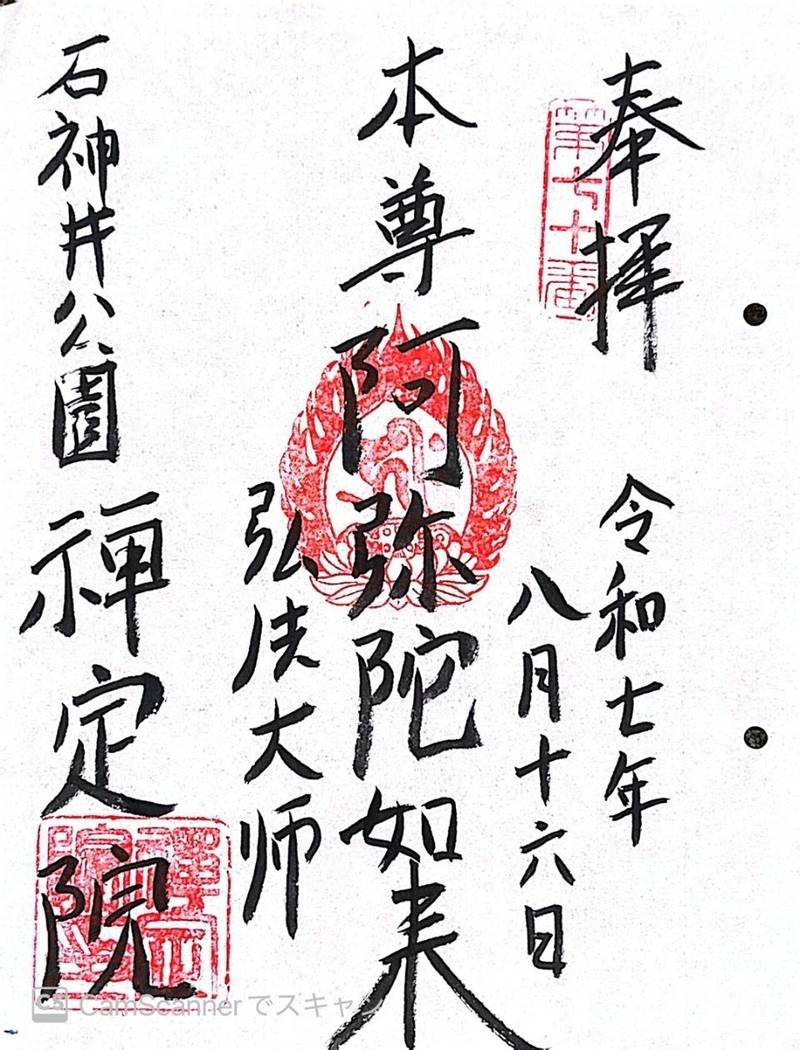 奉拝
第七十番
令和七年
八月十六日
本尊阿弥陀如来
弘法大师
石神井公園
禅定院
CamScanner でスキャ